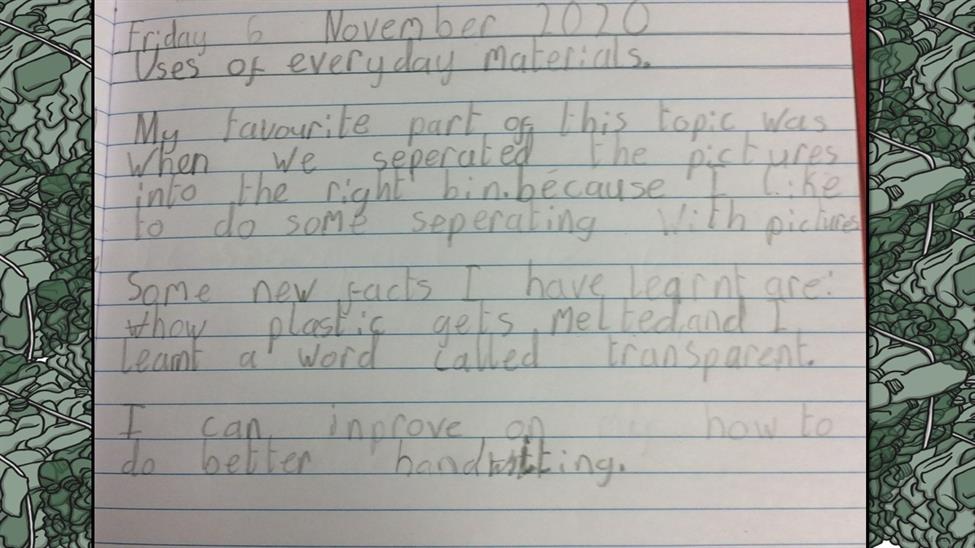 Friday 6 November 2020
Uses of everyday materials.
My favourite part of this topic was
when we seperated the pictures
into the right bin.because I like
to do some seperating with pictures
Some new facts I have learnt are:
how plastic gets melted.and I
learnt a word called transparent.
I can inprove on how to
do better handwitting.